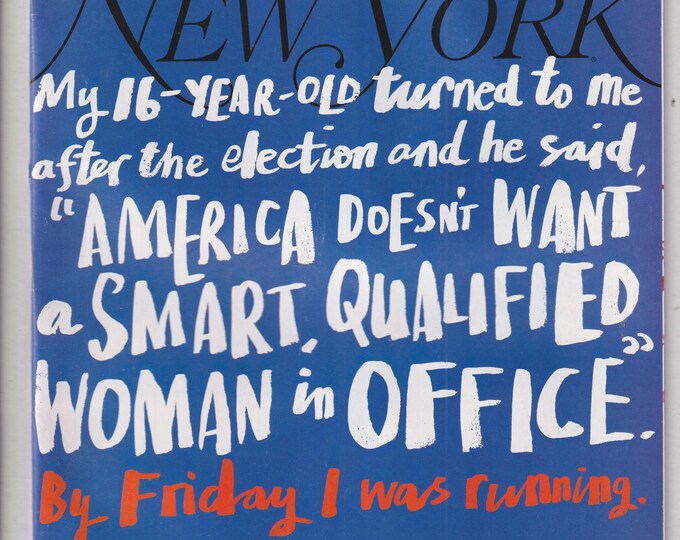 NEW YORK®
My 16-YEAR-OLD turned to me
after the election and he said,
“AMERICA DOESN'T WANT
a SMART, QUALIFIED
WOMAN in OFFICE.”
By Friday I was running.